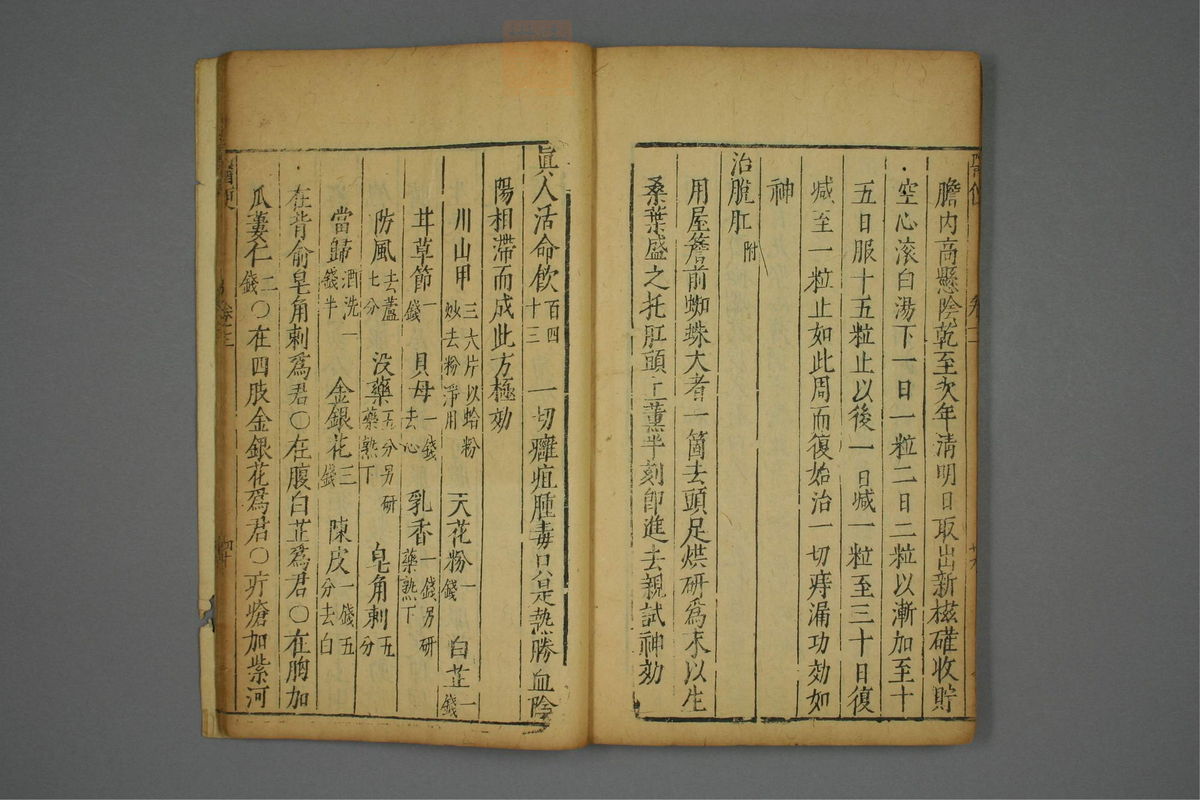 膽內高懸陰乾至次年清明日取出新磁礶收貯
空心滚白湯下一日一粒二日二粒以漸加至十
五日服十五粒止以後一日减一粒至三十日復
减至一粒止如此周而復始治一切痔漏功効如
神
治脫肛附
用屋簷前蜘蛛大者一箇去頭足烘研爲末以生
桑葉盛之托肛頭上薰半刻即進去親試神効
眞人活命飲百四十三 一切癰疽腫毒只是熱勝血陰
陽相滯而成此方極効
川山甲三大片以蛤粉炒去粉淨用 天花粉一錢 白芷一錢
甘草節一錢 貝母一錢去心 乳香一錢另研藥熟下
防風去蘆七分 没藥五分另研藥熟下 皂角刺五分
當歸酒洗一錢半 金銀花三錢 陳皮一錢五分去白
在背俞皂角刺爲君○在腹白芷爲君○在胸加
瓜蔞仁二錢○在四肢金銀花爲君○疔瘡加紫河